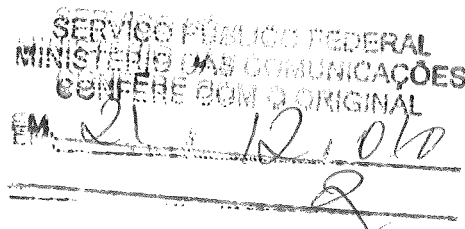 SERVIÇO PÚBLICO FEDERAL
MINISTÉRIO DAS COMUNICAÇÕES
CONFERE COM O ORIGINAL
EM, 21 / 12 / 010